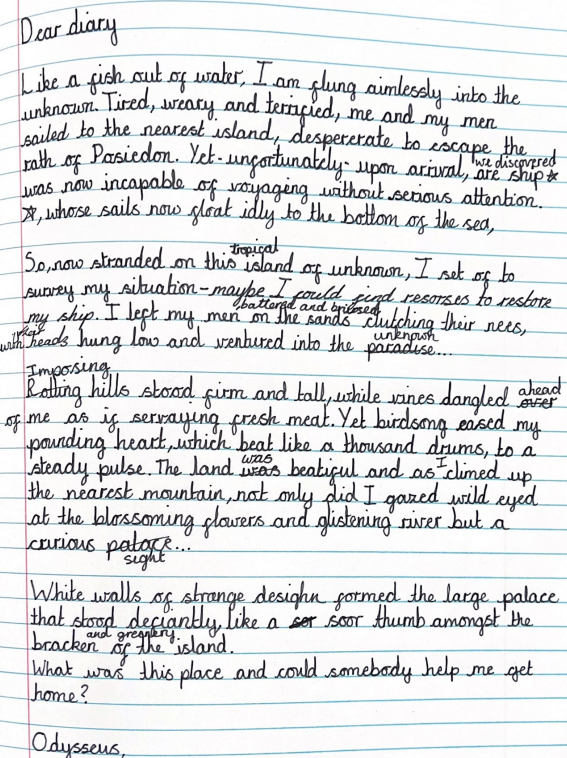 Dear diary
Like a fish out of water, I am flung aimlessly into the
unknown. Tired, weary and terrified, me and my men
sailed to the nearest island, despererate to escape the
rath of Posiedon. Yet-unfortunately- upon arrival, we discovered are ship ☆
was now incapable of voyaging without serious attention.
☆, whose sails now float idly to the bottom of the sea,
So, now stranded on this tropical island of unknown, I set of to
survey my situation-maybe I could find resorses to restore
my ship. I left my men battered and briosed on the sands clutching their nees,
with their heads hung low and ventured into the unknown paradise...
Imposing
Rolling hills stood firm and tall, while vines dangled ahead over
of me as if servaying fresh meat. Yet birdsong eased my
pounding heart, which beat like a thousand drums, to a
steady pulse. The land was was beatiful and as I climed up
the nearest mountain, not only did I gazed wild eyed
at the blossoming flowers and glistening river but a
crurious palace...
sight
White walls of strange desighn formed the large palace
that stood defiantly, like a sor soor thumb amongst the
bracken and greenery of the island.
What was this place and could somebody help me get
home?
Odysseus,